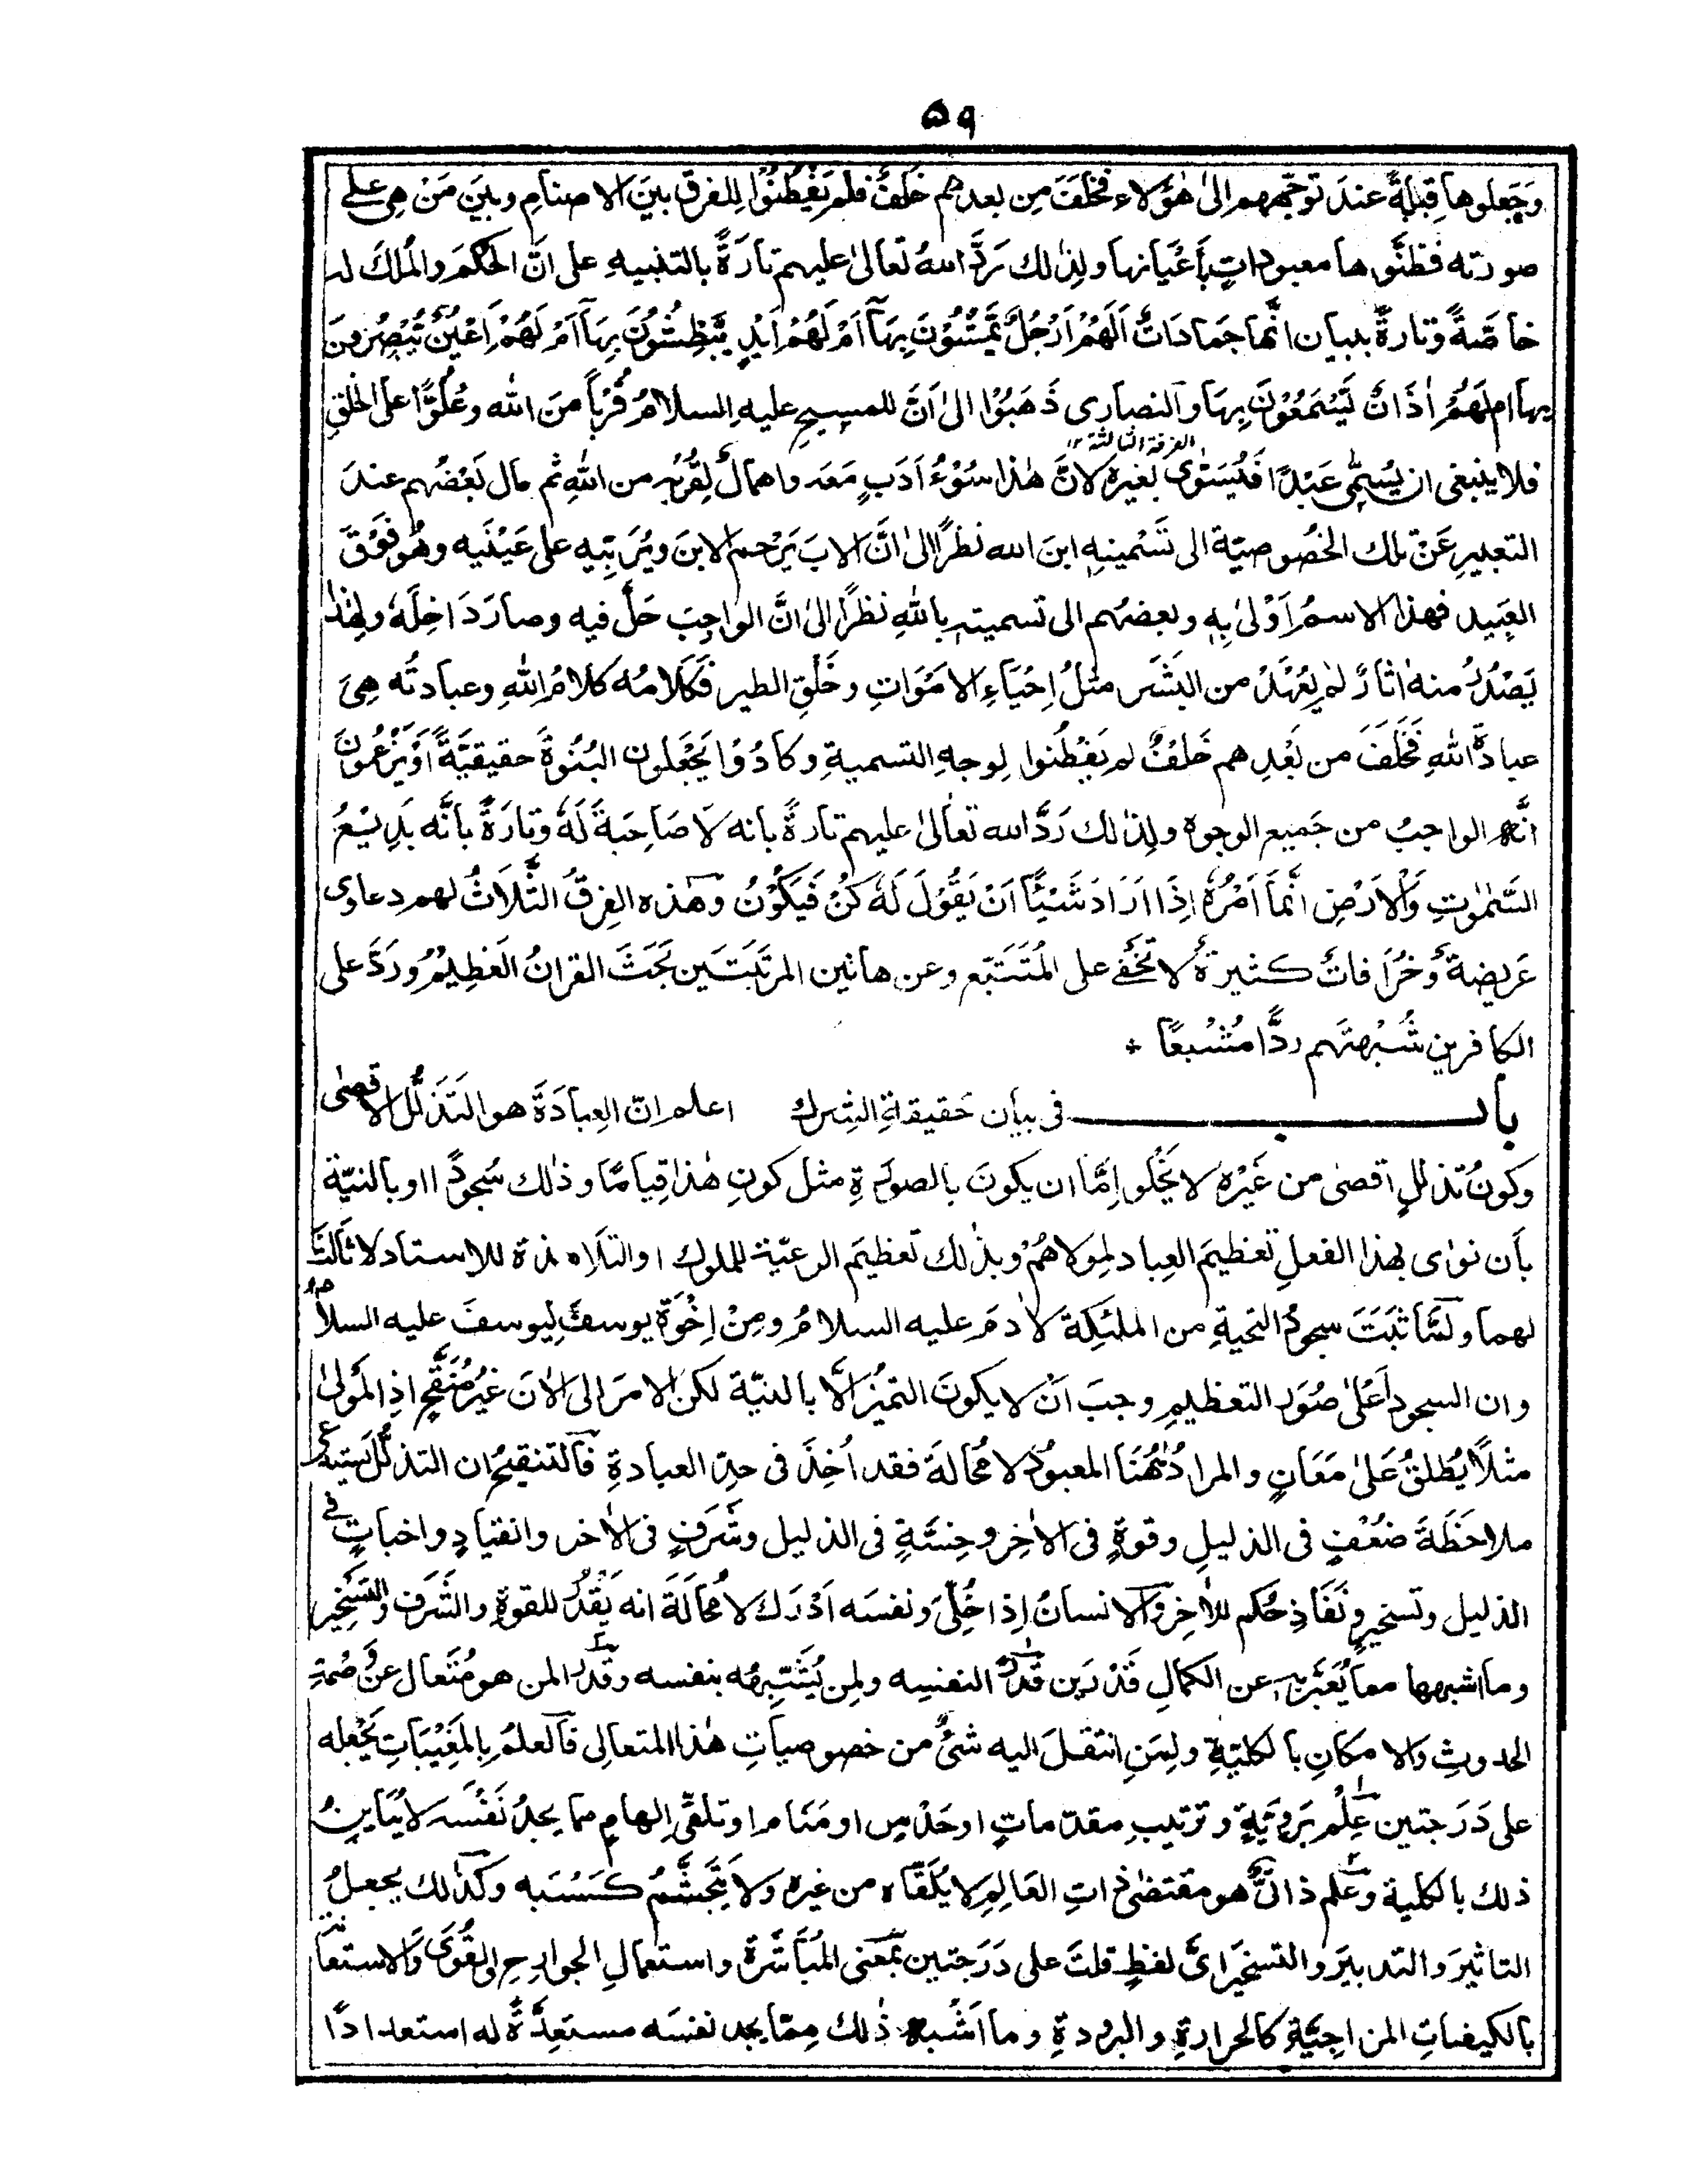 ۵۹
وَجَعلوها قِبلةً عندَ توجّههم الىٰ هٰؤلاء فخلَفَ مِن بعدهم خَلفٌ فلم يَفْطَنُوا لِلفرق بينَ الاصنامِ وبينَ مَنْ هِى على
صورته فظنّوها معبوداتٍ بأَعْيَانها ولِذٰلك رَدَّ اللهُ تعالىٰ عليهم تارَةً بالتنبيه على انّ الحُكمَ والمُلكَ له
خاصّةً وتارةً ببيان انّها جمادَاتٌ اَلَهُمْ اَرْجُلٌ يَّمْشُوْنَ بِهَآ اَمْ لَهُمْ اَيْدٍ يَّبْطِشُوْنَ بِهَآ اَمْ لَهُمْ اَعْيُنٌ يُّبْصِرُوْنَ
بها ام لَهُمْ اٰذَانٌ يَّسْمَعُوْنَ بِهَا وَالنصارى ذَهَبُوْا الىٰ اَنَّ للمسيح عليهِ السلامُ قُرْباً منَ الله وعُلُوًّا على الخلقِ
الفرقة الثالثة ١٢
فلا ينبغى ان يُسَمّٰى عَبْدًا فَيُسَوّٰى بغيرهٖ لانَّ هٰذا سُوْءُ اَدَبٍ مَعَه واهمالٌ لِقُرْبِهٖ من اللهِ ثم مال بَعْضُهم عندَ
التعبيرِ عَنْ تلك الخصُوصيّة الى تَسْميتهٖ ابنَ الله نظرًا الىٰ اَنَّ الابَ يَرْحم الابنَ ويُرَبِّيه على عَيْنَيه وهُو فَوْقَ
العَبِيد فهٰذا الاسمُ اَوْلىٰ بِهٖ وبعضهُم الى تسميتهٖ باللهِ نظرًا الىٰ انَّ الواجِبَ حَلَّ فيه وصارَ دَاخِلَهٗ ولِهٰذا
يَصْدُرُ منهُ اٰثارٌ لم يُعْهَدْ من البَشَر مثلُ اِحْيَاءِ الامْوَاتِ وخَلْقِ الطير فكَلَامُه كَلامُ اللهِ وعبادتُه هِىَ
عبادةُ اللهِ فَخَلَفَ من بَعْدِهم خَلْفٌ لم يَفْطَنوا لِوجهِ التسميةِ وكادُوْا يَجْعَلون البُنُوةَ حقيقيّةً اَوْ يَزْعُمُونَ
انّه الواجبُ من جَميعِ الوجوه ولِذٰلك رَدَّ الله تعَالىٰ عليهم تارةً بانه لَا صَاحِبَةَ لَهٗ وتارَةً بأنَّه بَدِيْعُ
السَّمٰوٰتِ وَالْاَرْضِ اِنَّمَا اَمْرُهٗ اِذَا اَرَادَ شَيْئًا اَنْ يَقُوْلَ لَهٗ كُنْ فَيَكُوْنُ وهٰذه الفِرَقُ الثَّلَاثُ لهم دعاوى
عَريضةٌ وَخُرَافاتٌ كثيرةٌ لا تَخْفٰى على المُتَتَبِّع وعن هاتين المرتَبَتَين بَحَثَ القرانُ العَظِيْمُ ورَدَّ على
الكافرين شُبْهتَهم ردًّا مُشْبعًا *
باب فى بيان حَقيقةِ الشِرك اعلم انّ العِبادَةَ هو التَذَلُّل الاقصٰى
وكونُ تذللٍ اقصٰى من غَيْرهٖ لا يَخْلُو اِمَّا ان يكونَ بالصورَةِ مثل كونِ هٰذا قِيامًا وذٰلك سُجودًا او بالنيّة
بأن نوٰى بهٰذا الفعلِ تعظيمَ العِباد لِمولاهُمْ وبذٰلك تعظيمَ الرعيّة للملوك او التلَامذة للاستاد لا ثالثَ
لهما ولَمَّا ثبَتَ سجودُ التحيةِ من الملٰئكة لاٰدمَ عليه السلامُ ومِنْ اِخْوَةِ يوسفَ لِيوسفَ عليه السلام
وان السجود اَعْلىٰ صُوَرِ التعظيم وجبَ اَنْ لا يكونَ التميّزُ اِلّا بالنيّة لكن الامرَ الى الاٰنَ غيرُ مُنَقَّحٍ اذِ المَولىٰ
مثلاً يُطْلقُ عَلىٰ مَعَانٍ والمرادُ هٰهُنَا المعبودُ لا محالةَ فقد اُخِذَ فى حدِّ العبادةِ فالتنقيحُ ان التذلُّل يَستدعى
ملاحَظَةَ ضُعْفٍ فى الذليلِ وقوةٍ فى الاٰخِر وخِسَّةٍ فى الذليل وشَرَفٍ فى الاٰخر وانقيادٍ واخباتٍ فى
الذليل وتسخيرٍ ونَفَاذِ حُكم للاٰخِر والانسانُ اِذا خُلِّىَ ونفسَه اَدْرَك لا مُحَالَةَ انه يُقَدِّرُ للقوةِ والشَرَفِ والتسخيرِ
وما اشبهها مما يُعَبَّرُ بهٖ عن الكمالِ قَدْرَين قَدْرًا لنفسِه ولِمن يُشَبِّهُه بنفسه وقَدْرًا لمن هو مُتَعالٍ عن وَصْمَةِ
الحدوثِ والامكانِ بالكليّةِ ولِمَنِ انتقلَ اليه شىْءٌ من خصوصياتِ هٰذا المتعالى فالعلمُ بالمغيّباتِ يَجْعله
على دَرَجتين علمٌ بِرَوِيّةٍ وترتيبِ مقدّماتٍ او حَدْسٍ او مَنَام او تلقّى اِلهامٍ مما يجدُ نَفْسَه لا يُبَاينُ
ذلك بالكلية وعلم ذاتىٌ هو مقتضٰى ذاتِ العَالِمِ لا يَلقّاه من غيره ولا يَتَجَشَّمُ كَسْبَه وكذٰلك يجعلُ
التاثيرَ والتدبيرَ والتسخيرَ اىَّ لفظٍ قلتَ على دَرَجتين بمعنى المُبَاشرة واستعمالِ الجوارحِ والقُوٰى والاستعانة
بالكيفياتِ المزاجِيّةِ كالحرارةِ والبرودةِ وما اَشْبه ذٰلك مِمّا يجد نفسَه مستعِدّةً له استعدادًا